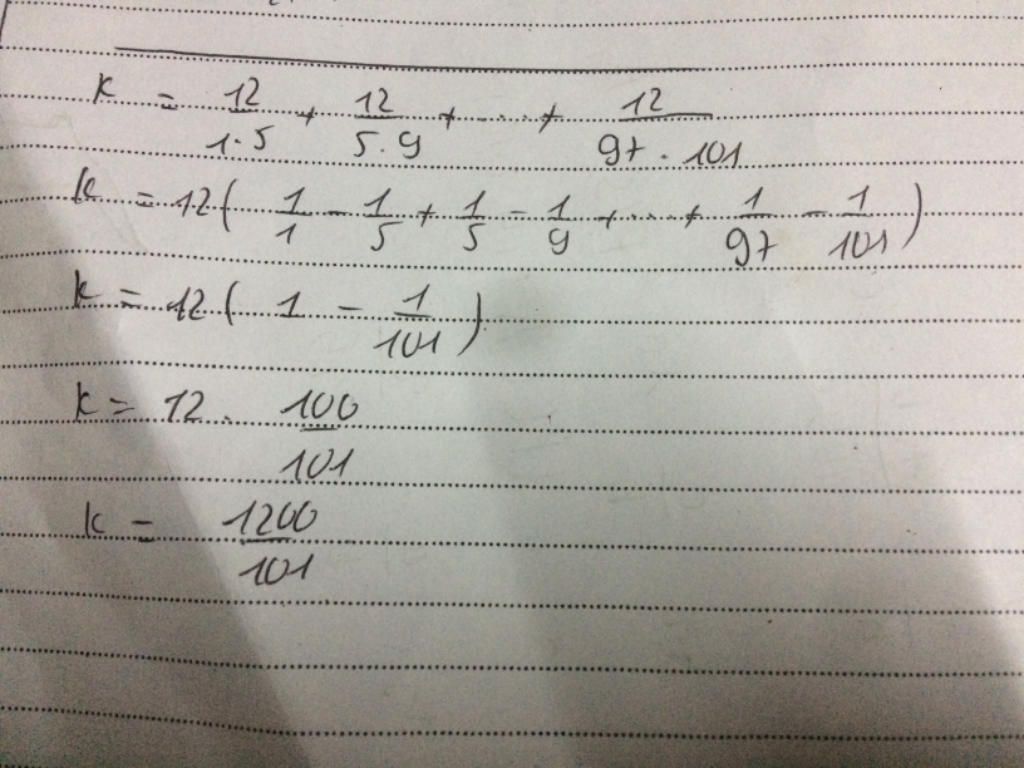 K = 12/1.5 + 12/5.9 + ..... + 12/97.101
K = 12( 1/1 - 1/5 + 1/5 - 1/9 + ..... + 1/97 - 1/101 )
K = 12( 1 - 1/101 )
K = 12 . 100/101
K = 1200/101